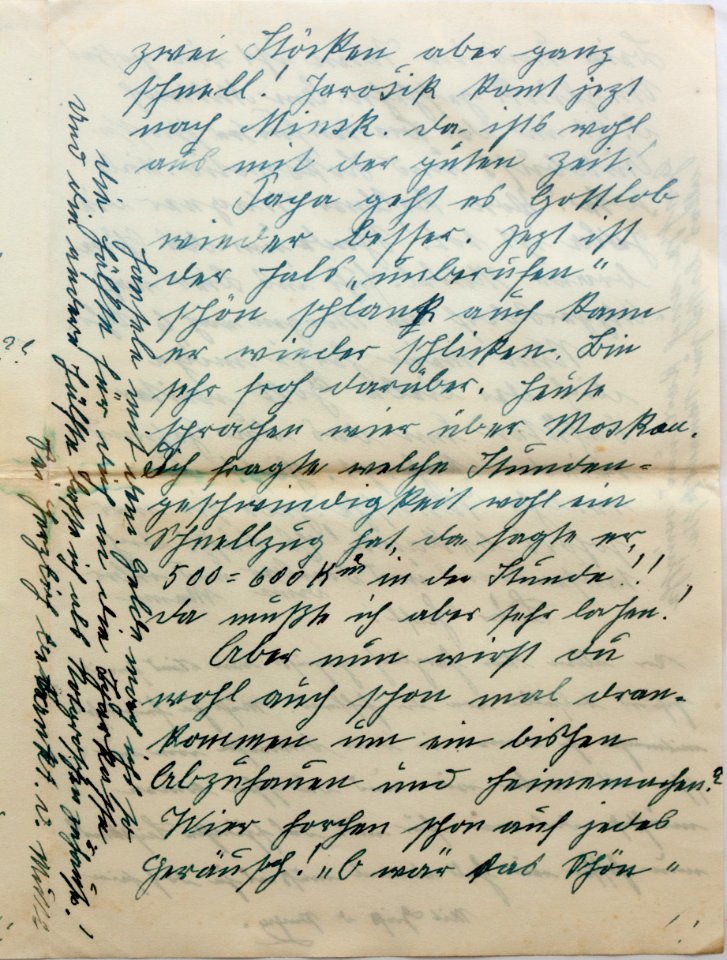 zwei Stöcken aber ganz
schnell! Jarošik komt jezt
nach Minsk. da ists wohl
aus mit der guten Zeit!
Papa geht es Gottlob
wieder besser. Jezt ist
der Hals „unberufen"
schön schlank auch kann
er wieder schlicken. Bin
sehr froh darüber. Heute
sprachen wier über Moskau.
Ich fragte welche Stunden=
geschwindigkeit wohl ein
Schnellzug hat, da sagte er,
500=600 Km in der Stunde!!
da mußte ich aber sehr lachen!
Aber nun wirst du
wohl auch schon mal dran-
kommen um ein bischen
Abzuhauen und heimemachen?
Wier horchen schon auf jedes
Geräusch! „O wär das Schön"
mit dem Gelde mach ich so
die Hälfte für dich in die Sparkasse
und die andere Hälfte lasse ich als
Sei herzlich